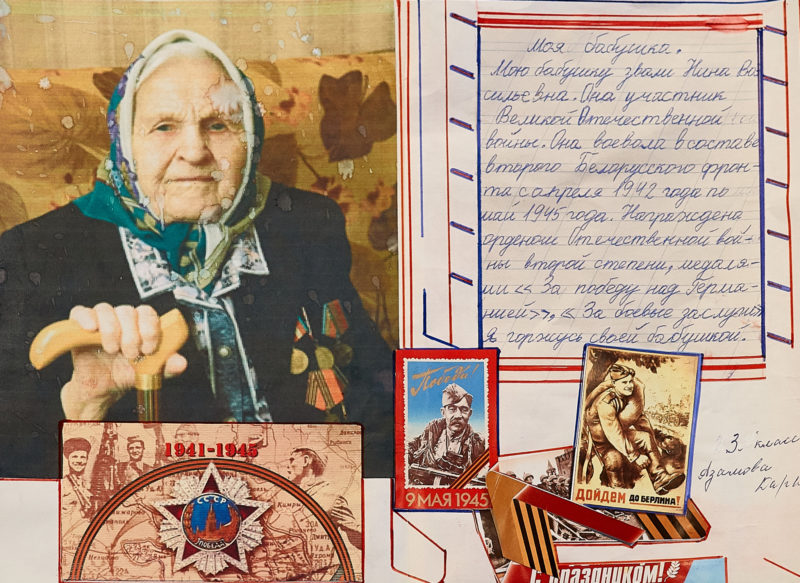 Моя бабушка.
Мою бабушку звали Нина Ва
сильевна. Она участник
Великой Отечественной
войны. Она воевала в составе
второго Белорусского фрон-
та с апреля 1942 года по
май 1945 года. Награждена
орденом Отечественной вой-
ны второй степени, медаля-
ми «За победу над Герма-
нией», «За боевые заслуги»
Я горжусь своей бабушкой.
1941-1945
СССР
ПОБЕДА
Победа!
9 МАЯ 1945
ДОЙДЕМ ДО БЕРЛИНА!
3 класс
Азамова
С ПРАЗДНИКОМ!